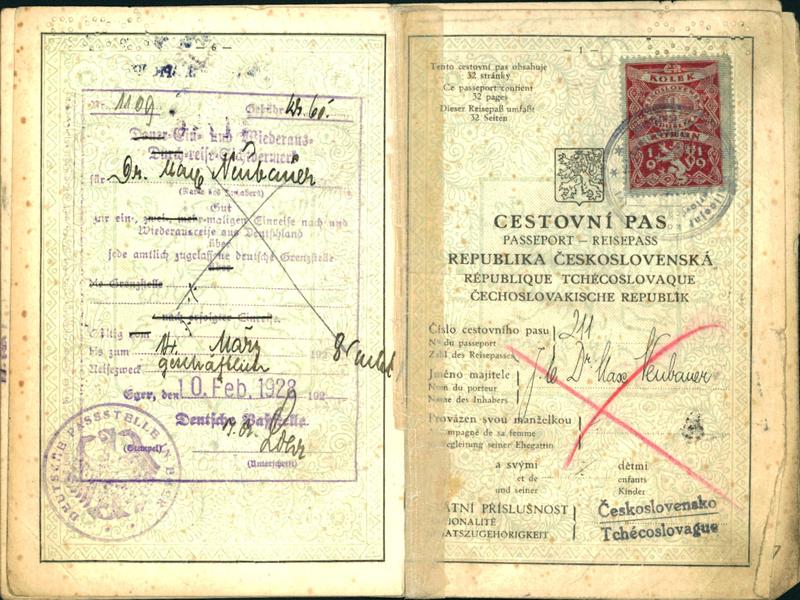 - 6 -
Nr. 1109 Gebühr Kr. 60.-
Dauer-Ein- und Wiederaus-
Durch-reise-Sichtvermerk
für Dr. Max Neubauer
(Name des Inhabers)
Gut
zur ein-, zwei-, mehr-maligen Einreise nach und
Wiederausreise aus Deutschland
über
jede amtlich zugelassene deutsche Grenzstelle
über
die Grenzstelle
nach erfolgter Einreise.
Gültig vom
bis zum März 192
Reisezweck geschäftlich
Eger, den 10. Feb. 1928 192
Deutsche Paßstelle.
(Stempel)
(Unterschrift)
DEUTSCHE PASSSTELLE IN EGER
- 1 -
Tento cestovní pas obsahuje
32 stránky
Ce passeport contient
32 pages
Dieser Reisepaß umfaßt
32 Seiten
KOLEK
1919
CESTOVNÍ PAS
PASSEPORT – REISEPASS
REPUBLIKA ČESKOSLOVENSKÁ
RÉPUBLIQUE TCHÉCOSLOVAQUE
ČECHOSLOVAKISCHE REPUBLIK
Číslo cestovního pasu 211
No du passeport
Zahl des Reisepasses
Jméno majitele Dr Max Neubauer
Nom du porteur
Name des Inhabers
Provázen svou manželkou
compagné de sa femme
egleitung seiner Ehegattin
a svými dětmi
et de enfants
und seiner Kinder
ÁTNÍ PŘÍSLUŠNOST Československo
IONALITÉ Tchécoslovaque
ATSZUGEHÖRIGKEIT